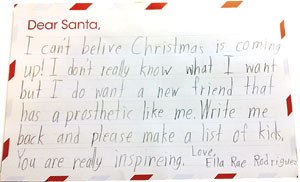 Dear Santa,
I can't belive Christmas is coming
up! I don't really know what I want
but I do want a new friend that
has a prosthetic like me. Write me
back and please make a list of kids,
You are really inspireing. Love,
Ella Rae Rodriguez